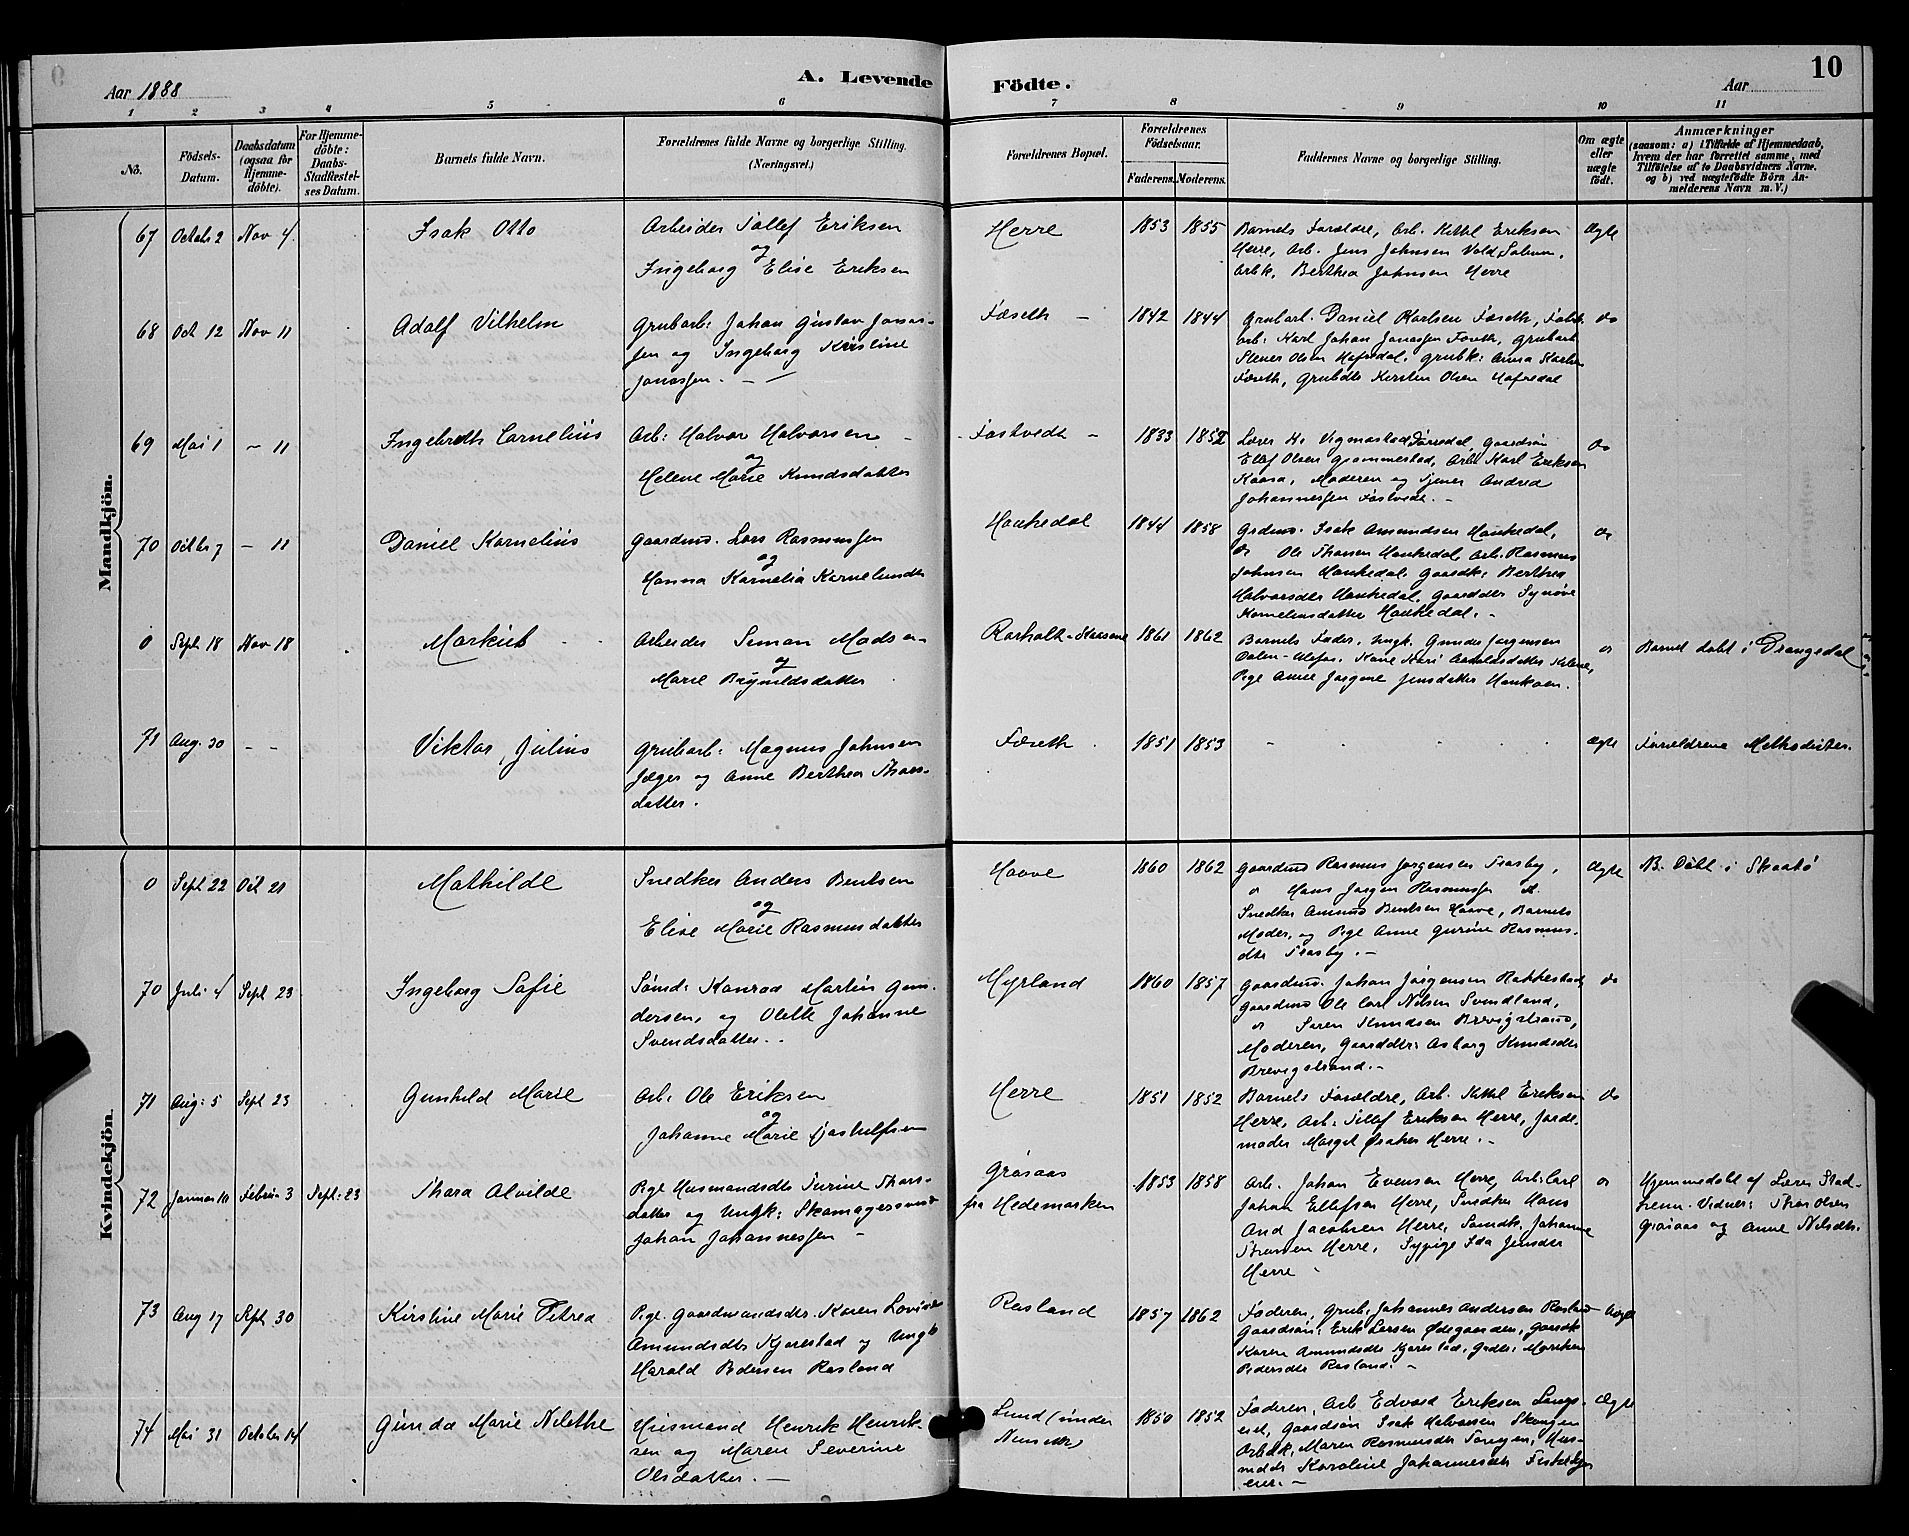 Aar 1888
A. Levende
Födte.
Aar
10
1 2 3 4 5 6 7 8 9 10 11
No.
Födsels-
Datum.
Daabsdatum
(ogsaa for
Hjemme-
döbte).
For Hjemme-
döbte:
Daabs-
Stadfestel-
ses Datum.
Barnets fulde Navn.
Forældrenes fulde Navne og borgerlige Stilling.
(Næringsvei.)
Forældrenes Bopæl.
Forældrenes
Födselsaar.
Faderens. Moderens.
Faddernes Navne og borgerlige Stilling.
Om ægte
eller
uægte
födt.
Anmærkninger
(saasom: a) i Tilfælde af Hjemmedaab,
hvem der har forrettet samme, med
Tilföielse af to Daabsvidners Navne.
og b) ved uægtefödte Börn An-
melderens Navn m. V.)
Mandkjön.
67 Octob 2 Nov 4 Isak Otto
Arbeider Tollef Eriksen
og
Ingeborg Elise Eriksen
Herre 1853 1855
Barnets Forældre, Arb. Kittil Eriksen
Herre, Arb. Jens Johnsen Vold,
Arbk, Berthea Johnsen Herre
Ægte
68 Oct 12 Nov 11 Adolf Vilhelm
Grubarb: Johan Gustav Jonas-
sen og Ingeborg Kristine
Jonassen. - -
Foseth - 1842 1844
Grubarb. Daniel Karlsen Foseth,
arb: Karl Johan Jonassen Foseth, Grubarb
Stener Olsen Hafredal. Grubk: Anna Karlsen
Foseth, Grubdtr Kirsten Olsen Hafredal
do
69 Mai 1 - 11 Ingebreth Cornelius
Arb: Halvor Halvorsen -
og
Helene Marie Knudsdatter
Fostvedt - 1833 1852
Lærer H. Vigmostad, Gaardsön
Ellef Olsen Grommestad, Arb. Karl Eriksen
Kaasa, Moderen og Tjener Andrea
Johannessen Fostvedt. -
do
70 Octbr 7 - 11 Daniel Kornelius
Gaardmd. Lars Rasmussen
og
Hanna Kornelia Korneliusdtr
Haukedal 1844 1858
Grdmd. Isak Amundsen Haukedal,
do Ole Thorsen Haukedal, Arb. Rasmus
Johnsen Haukedal. Gaardk: Berthea
Halvorsdtr Haukedal, Gaarddtr Synöve
Korneliusdatter Haukedal. -
do
0 Sept 18 Nov 18
Arbeider Simon Madsen -
og
Marie Brynildsdatter
Rorholt - 1861 1862
Barnets Fader, Ungk. Gunder Jörgensen
Dalen - Ulefos. Kone Kari Aanoldsdatter
Pige Anne Jörgine Jensdatter
do
Barnet döbt i Drangedal
71 Aug. 30 - - Viktor Julius
Grubarb: Magnus Johnsen
Jæger og Anne Berthea Thors-
datter.
Foseth. 1851 1853
Ægte
Forældrene Methodister.
Kvindekjön.
0 Sept 22 Oct 21 Mathilde
Snedker Anders Bentsen
og
Elise Marie Rasmusdatter
Haave 1860 1862
Gaardmd Rasmus Jörgensen Trosby,
do Hans Jörgen Rasmussen
Snedker Amund Bentsen Haave, Barnets
Moder, og Pige Anne Gurine Rasmus-
dtr Trosby. -
Ægte
B. Döbt i Skaatö
70 Juli 4 Sept 23 Ingeborg Sofie
Sömd: Konrad Martin Gun-
dersen, og Olette Johanne
Svendsdatter. .
Myrland 1860 1857
Gaardmd. Johan Jörgensen Rakkestad
Gaardmd Ole Carl Nilsen Svindland,
do Sören Knudsen Brevigstrand,
Moderen, Gaarddtr: Asborg Knudsdtr
Brevigstrand. -
do
71 Aug: 5 Sept 23 Gunhild Marie
Arb: Ole Eriksen
og
Johanne Marie
Herre 1851 1852
Barnets Forældre, Arb. Kittil Eriksen
Herre, Arb: Tollef Eriksen Herre, Jorde-
moder Margit Herre. -
do
72 Januar 10 Februa 3 Sept: 23 Thora Alvilde
Pige Husmandsdtr Turine Thors-
datter og Ungk: Skomagersvend
Johan Johannessen -
Gråsaas
fra Hedemarken
1853 1858
Arb. Johan Evensen Herre, Arb. Carl
Johan Ellefsen Herre, Snedker Hans
And Jacobsen Herre, Sömdk. Johanne
Herre, Sypige Ida Jensdtr
Herre -
do
Hjemmedöbt af Lærer
Vidner: Thor Olsen
Gråsaas og Anne Nilsdtr.
73 Aug 17 Spt 30 Kirstine Marie Petrea
Pige Gaardmandsdtr. Karen Lovise
Amundsdtr Kjørestad og Ungk
Harald Pedersen Rosland
Rosland 1857 1862
Faderen, Grub. Johannes Andersen Rosland
Gaardsön: Erik Larsen Ødegaarden, Gaardk
Karen Amundsdtr Kjørestad,
Pedersdtr Rosland. -
74 Mai 31 October 14 Gunda Marie Nilethe
Husmand Henrik Henrik-
sen og Maren Severine
Olsdatter. -
Lund (under
1850 1852
Faderen, Arb Edvard Eriksen Langs-
eid, Gaardsön Isak Halvorsen Skougen
Arbdk, Maren Rasmusdtr
Karoline Johannesdtr
Ægte